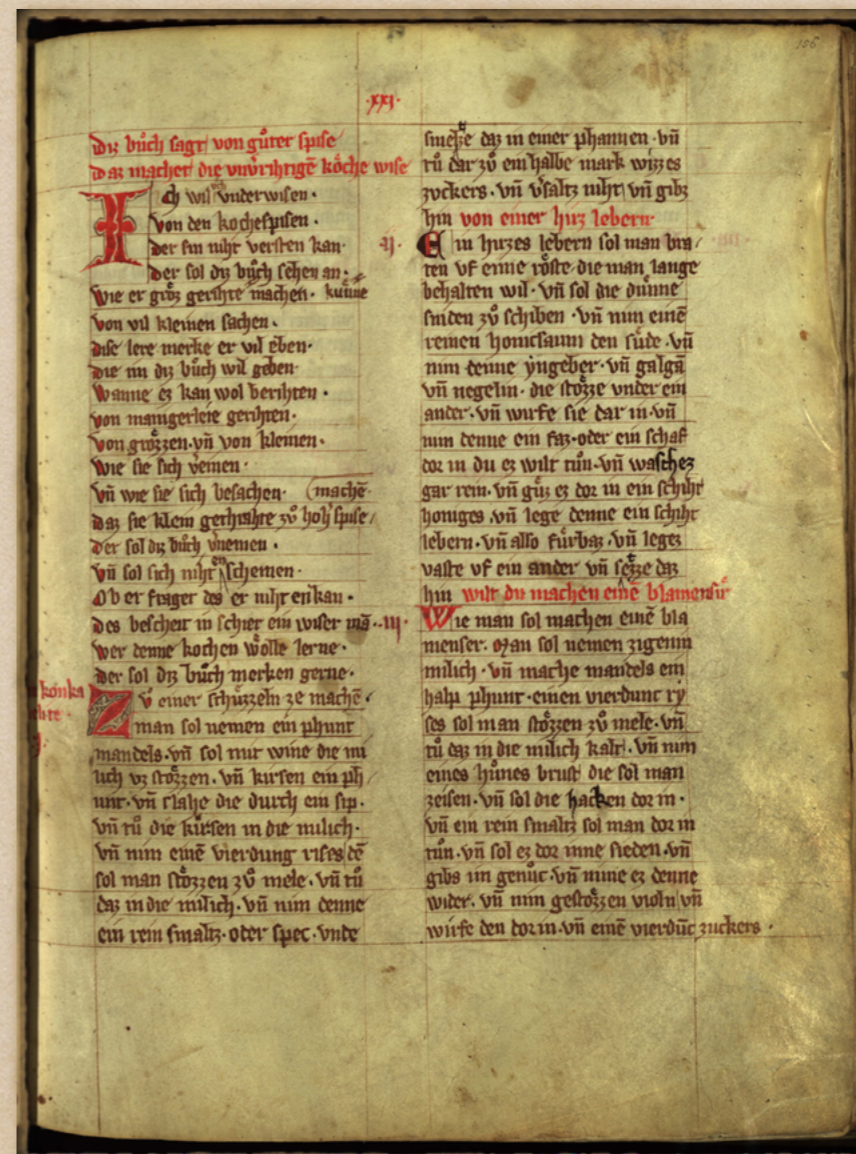 156
·xxi·
diz bůch sagt von gůter spise
Daz machet die vnv̓rihtigē kóche wise
Ich wil v̓nderwisen·
von den kochespisen·
der sin niht versten kan·
der sol diz bůch sehen an·
wie er groz gerihte machen· kunne
von vil kleinen sachen·
dise lere merke er vil eben·
die im diz bůch wil geben·
wanne ez kan wol berihten·
von manigerleie gerihten·
von grozzen·vn̄ von kleinen·
wie sie sich v̓einen·
vn̄ wie sie sich besachen· (machē·
daz sie klein gerihte zů hoh̓ spise
der sol diz bůch v̓nemen·
vn̄ sol sich niht enschemen·
Ob er fraget des er niht enkan·
des bescheit in schier ein wiser mā·
wer denne kochen wólle lerne·
der sol diz bůch merken gerne·
konka
Zů einer schuzzeln ze machē·
man sol nemen ein phunt
mandels·vn̄ sol mit wine die mi
lich vz stozzen·vn̄ kirsen ein ph
unt·vn̄ slahe die durch ein sip·
vn̄ tů die kirsen in die milich·
vn̄ nim einē vierdung rises dē
sol man stozzen zů mele·vn̄ tů
daz in die milich·vn̄ nim denne
ein rein smaltz·oder spec·vnde
smeltze daz in einer phannen·vn̄
tů dar zů ein halbe mark wizzes
zuckers·vn̄ v̓saltz niht vn̄ gibz
hin von einer hirz lebern
·ij· Ein hirzes lebern sol man bra
ten vf eime róste·die man lange
behalten wil·vn̄ sol die dunne
sniden zů schiben·vn̄ nim einē
reinen honicsaum den sude·vn̄
nim denne yngeber·vn̄ galgā
vn̄ negelin·die stozze vnder ein
ander·vn̄ wirfe sie dar in·vn̄
nim denne ein faz·oder ein schaf
dor in du ez wilt tůn·vn̄ waschez
gar rein·vn̄ guz ez dor in ein schiht
honiges·vn̄ lege denne ein schiht
lebern·vn̄ also fúrbaz·vn̄ legez
vaste vf ein ander vn̄ setze daz
hin wilt du machen einē blamensir
·iij· Wie man sol machen einē bla
menser·Man sol nemen zigenin
milich·vn̄ mache mandels ein
halp phunt·einen vierdunc ry
ses sol man stozzen zů mele·vn̄
tů daz in die milich kalt·vn̄ nim
eines hůnes brust die sol man
zeisen·vn̄ sol die hacken dor in·
vn̄ ein rein smaltz sol man dor in
tůn·vn̄ sol ez dor inne sieden·vn̄
gibs im genůc·vn̄ nime ez denne
wider·vn̄ nim gestozzen violn vn̄
wirfe den dor in·vn̄ einē vierdūc zuckers·